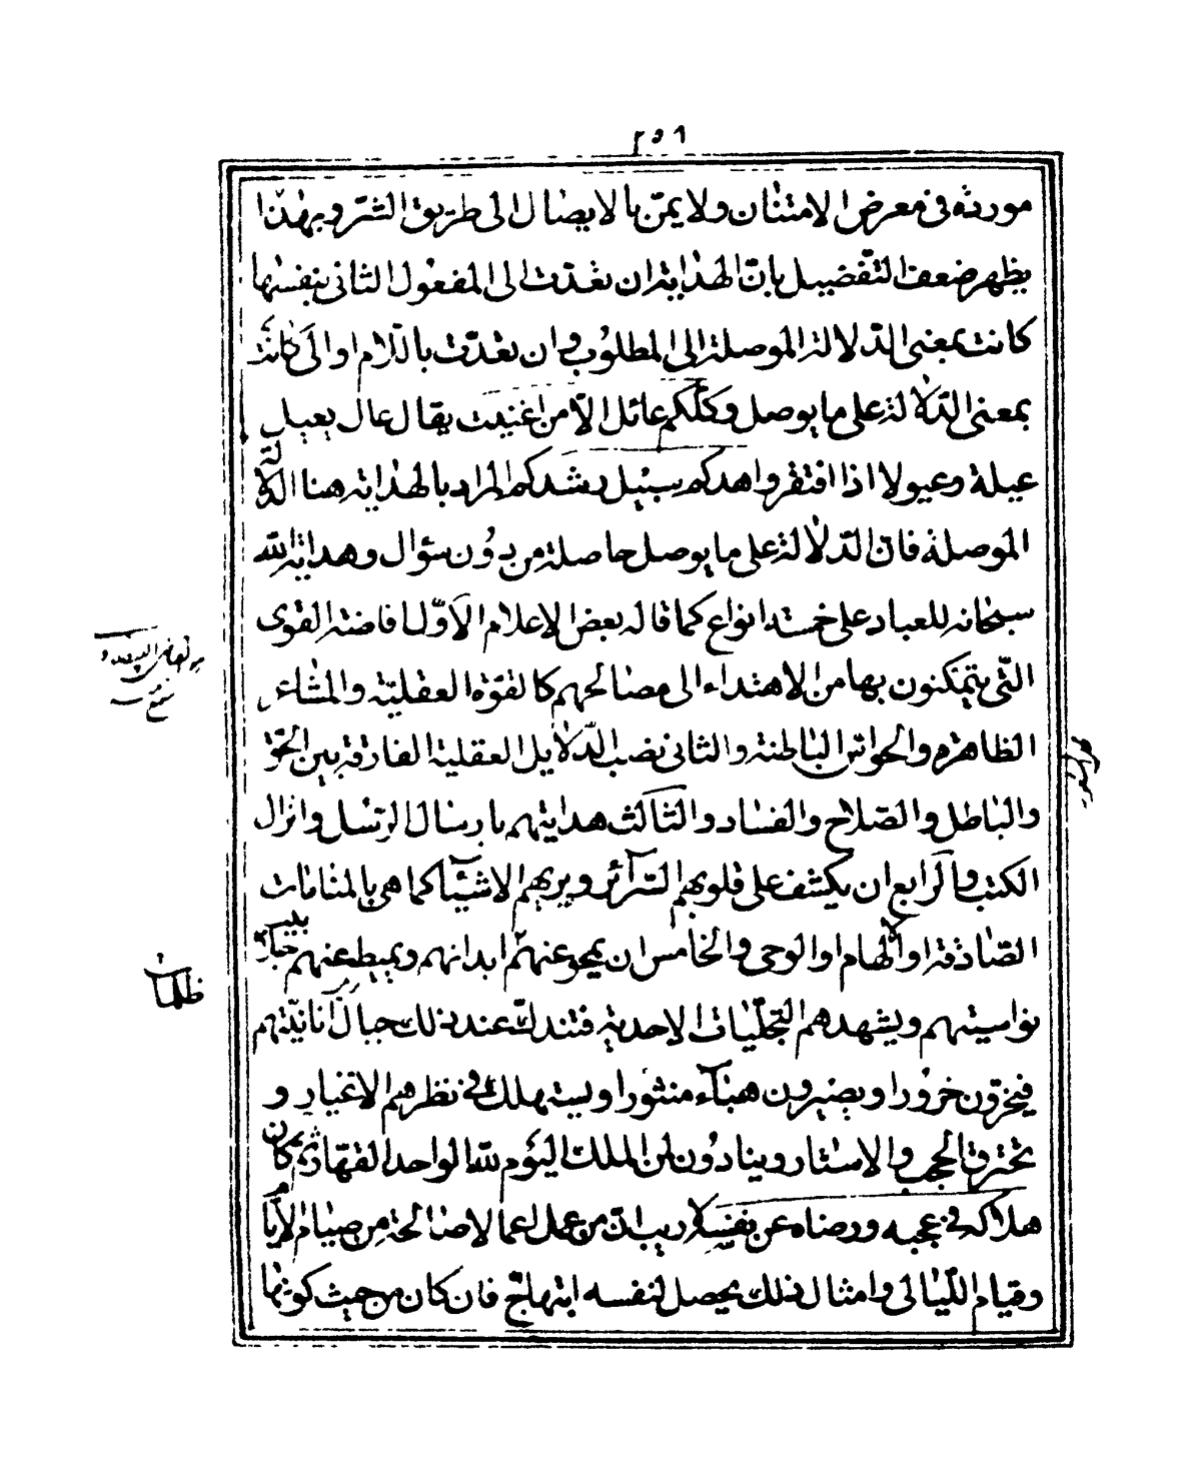 ٢٥٦
موردة فى معرض الامتنان ولا يمنّ بالايصال الى طريق الشرّ وبهذا
يظهر ضعف التفضيل بانّ الهداية ان تعدّت الى المفعول الثانى بنفسها
كانت بمعنى الدّلالة الموصلة الى المطلوب وان تعدّت باللّام او الى كانت
بمعنى الدّلالة على ما يوصل وكلّكم عائل الّا من اغنيت يقال عال يعيل
عيلة وعيولا اذا افتقر واهدكم سبيل رشدكم المراد بالهداية هنا الدّلالة
الموصلة فانّ الدّلالة على ما يوصل حاصلة من دون سؤال وهداية اللّه
سبحانه للعباد على خمسة انواع كما قاله بعض الاعلام الاوّل افاضة القوى
الّتى يتمكنون بها من الاهتداء الى مصالحهم كالقوّة العقليّة والمشاعر
الظاهرة والحواسّ الباطنة والثانى نصب الدّلايل العقلية الفارقة بين الحقّ
والباطل والصّلاح والفساد والثّالث هدايتهم بارسال الرّسل وانزال
الكتب والرّابع ان يكشف على قلوبهم السّرآئر ويريهم الاشيآء كما هى بالمنامات
الصّادقة او الالهام او الوحى والخامس ان يمحو عنهم ابدانهم ويميط عنهم جلابيب
نواسيتهم ويشهدهم التجلّيات الاحدية فتندكّ عند ذلك جبال انانيّتهم
فيخرّون خرورا ويصيرون هبآء منثورا ويستهلك فى نظرهم الاغيار و
تحترق الحجب والاستار وينادون لمن الملك اليوم للّه الواحد القهّار ثمّ كان
هلاكه فى عجبه ورضاه عن نفسه لا ريب انّ من عمل اعمالا صالحة من صيام الايّام
وقيام اللّيالى وامثال ذلك يحصل لنفسه ابتهاج فان كان من حيث كونها